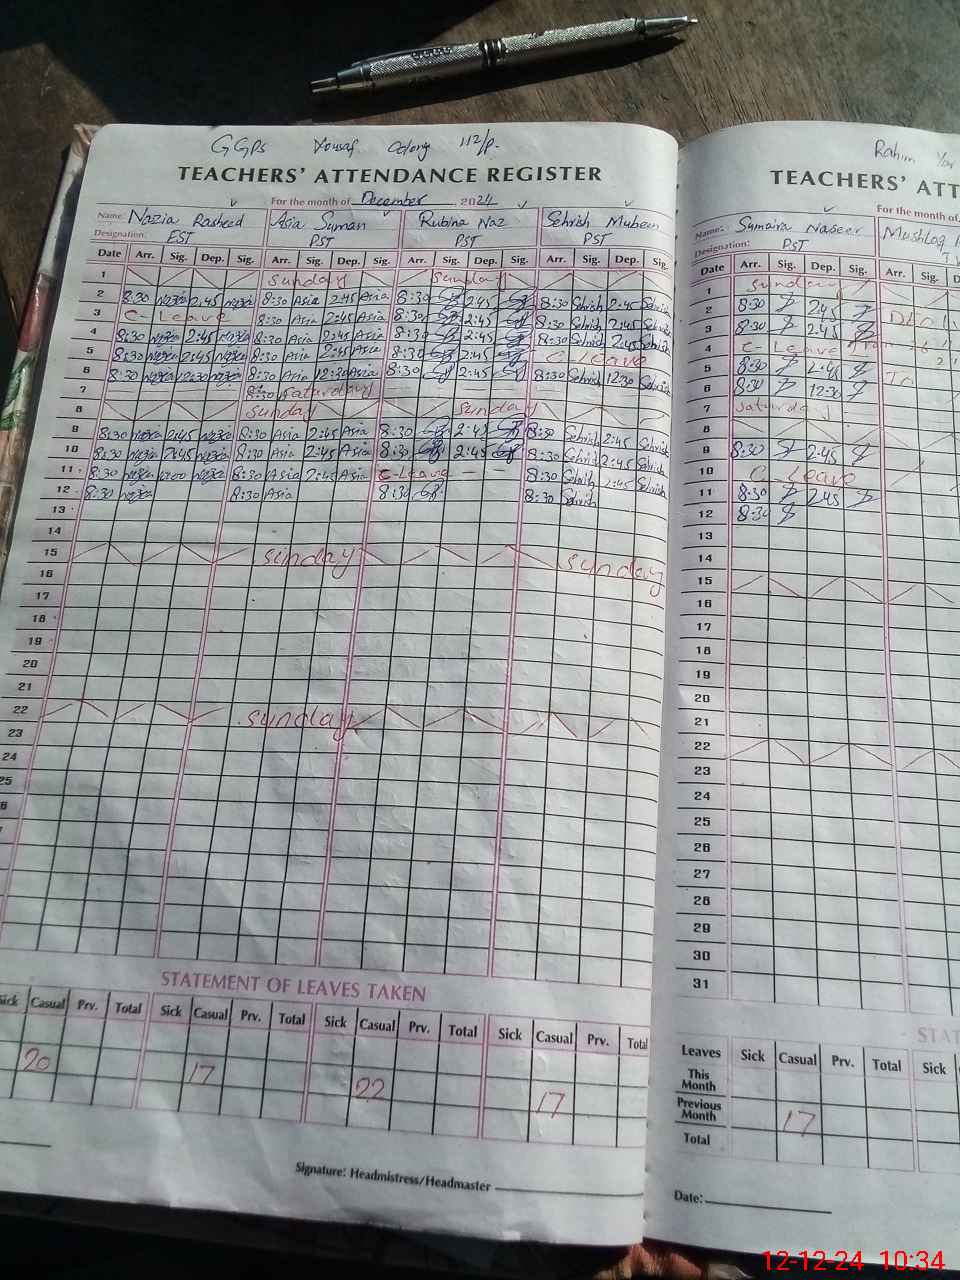 GGPS Yousaf Colony 112/P.
TEACHERS' ATTENDANCE REGISTER
For the month of December 2024
Name: Nazia Rasheed Asia Suman Rubina Naz Sehrish Mubeen
Designation: EST PST PST PST
Date Arr. Sig. Dep. Sig. Arr. Sig. Dep. Sig. Arr. Sig. Dep. Sig. Arr. Sig. Dep. Sig.
1 Sunday Sunday
2 8:30 2:45 8:30 Asia 2:45 Asia 8:30 2:45 8:30 Sehrish 2:45 Sehrish
3 C- Leave 8:30 Asia 2:45 Asia 8:30 2:45 8:30 Sehrish 2:45 Sehrish
4 8:30 2:45 8:30 Asia 2:45 Asia 8:30 2:45 8:30 Sehrish 2:45 Sehrish
5 8:30 2:45 8:30 Asia 2:45 Asia 8:30 2:45 C Leave
6 8:30 12:30 8:30 Asia 12:30 Asia 8:30 2:45 8:30 Sehrish 12:30 Sehrish
7 Saturday
8 Sunday Sunday
9 8:30 2:45 8:30 Asia 2:45 Asia 8:30 2:45 8:30 Sehrish 2:45 Sehrish
10 8:30 2:45 8:30 Asia 2:45 Asia 8:30 2:45 8:30 Sehrish 2:45 Sehrish
11 8:30 8:30 Asia 2:45 Asia C-Leave 8:30 Sehrish 2:45 Sehrish
12 8:30 8:30 Asia 8:30 8:30 Sehrish
13
14
15 Sunday Sunday
16
17
18
19
20
21
22 Sunday
23
24
25
STATEMENT OF LEAVES TAKEN
Sick Casual Prv. Total Sick Casual Prv. Total Sick Casual Prv. Total Sick Casual Prv. Total
20 17 22 17
Signature: Headmistress/Headmaster
Rahim Yar
TEACHERS' ATT
For the month of
Name: Sumaira Naseer Mushtaq
Designation: PST
Date Arr. Sig. Dep. Sig. Arr. Sig.
1 Sunday
2 8:30 2:45
3 8:30 2:45
4 C- Leave
5 8:30 2:45
6 8:30 12:30
7 Saturday
8
9 8:30 2:45
10 C- Leave
11 8:30 2:45
12 8:30
13
14
15
16
17
18
19
20
21
22
23
24
25
26
27
28
29
30
31
STAT
Leaves Sick Casual Prv. Total Sick
This Month
Previous Month 17
Total
Date:
12-12-24 10:34